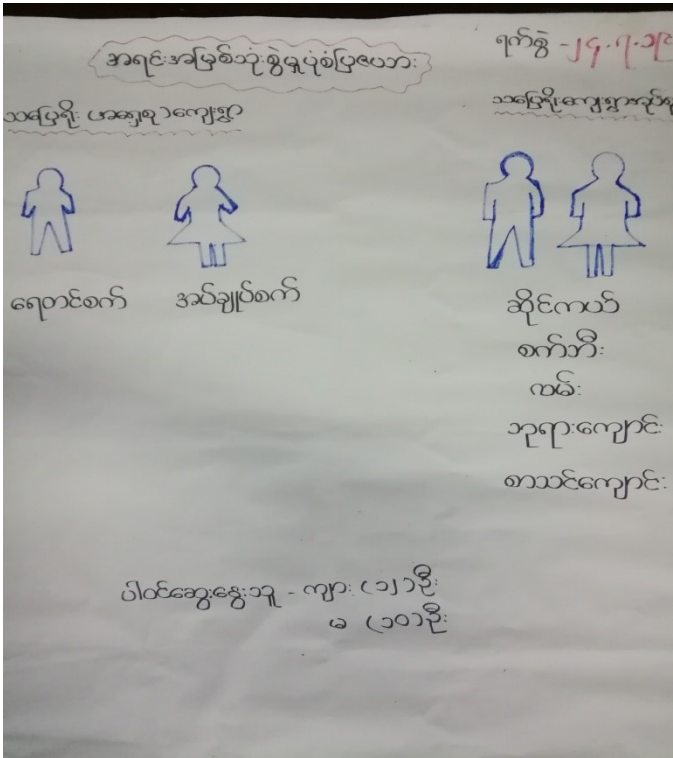 အရင်းအမြစ်သုံးစွဲမှုပုံစံပြဇယား
ရက်စွဲ - ၂၄.၇.၁၉
သပြေရိုး (အရှေ့စု) ကျေးရွာ
သပြေရိုးကျေးရွာအုပ်စု
ရေတင်စက်
အပ်ချုပ်စက်
ဆိုင်ကယ်
စက်ဘီး
ဖမ်း
ဘုရားကျောင်း
စာသင်ကျောင်း
ပါဝင်ဆွေးနွေးသူ - ကျား (၁၂) ဦး
မ (၁၀) ဦး